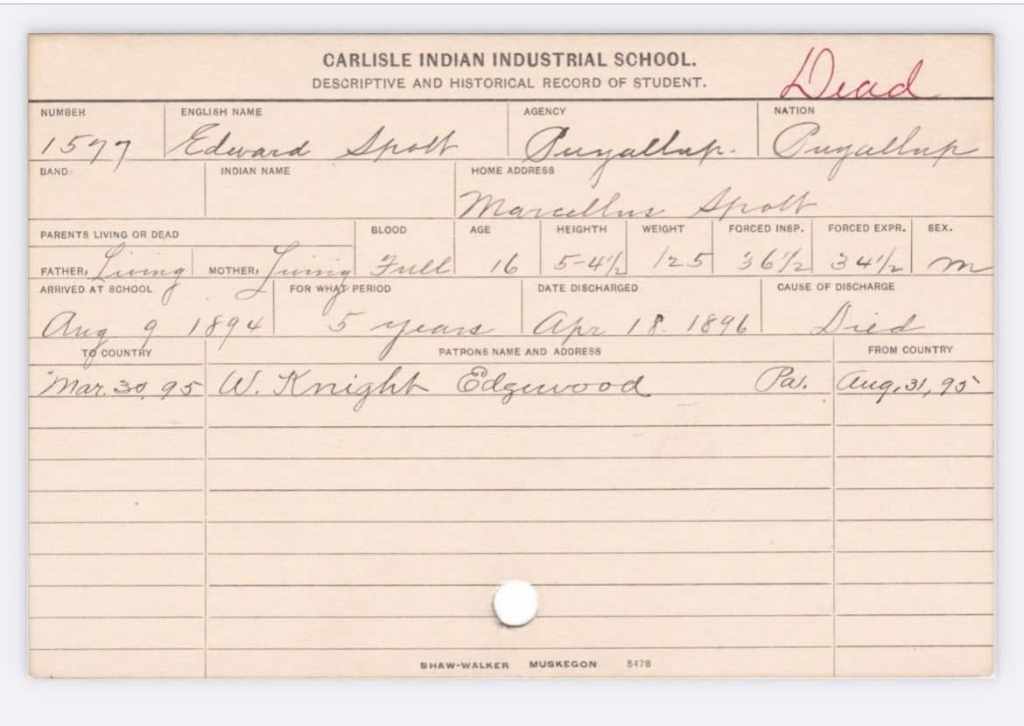 CARLISLE INDIAN INDUSTRIAL SCHOOL.
DESCRIPTIVE AND HISTORICAL RECORD OF STUDENT.
Dead
NUMBER ENGLISH NAME AGENCY NATION
1577 Edward Spott Puyallup. Puyallup
BAND INDIAN NAME HOME ADDRESS
Marcellus Spott
PARENTS LIVING OR DEAD BLOOD AGE HEIGHTH WEIGHT FORCED INSP. FORCED EXPR. SEX.
FATHER, Living MOTHER, Living Full 16 5-4½ 125 36½ 34½ M
ARRIVED AT SCHOOL FOR WHAT PERIOD DATE DISCHARGED CAUSE OF DISCHARGE
Aug 9 1894 5 years Apr 18. 1896 Died
TO COUNTRY PATRONS NAME AND ADDRESS FROM COUNTRY
Mar. 30, 95 W. Knight Edgewood Pa. Aug, 31, 95
SHAW-WALKER MUSKEGON 5478